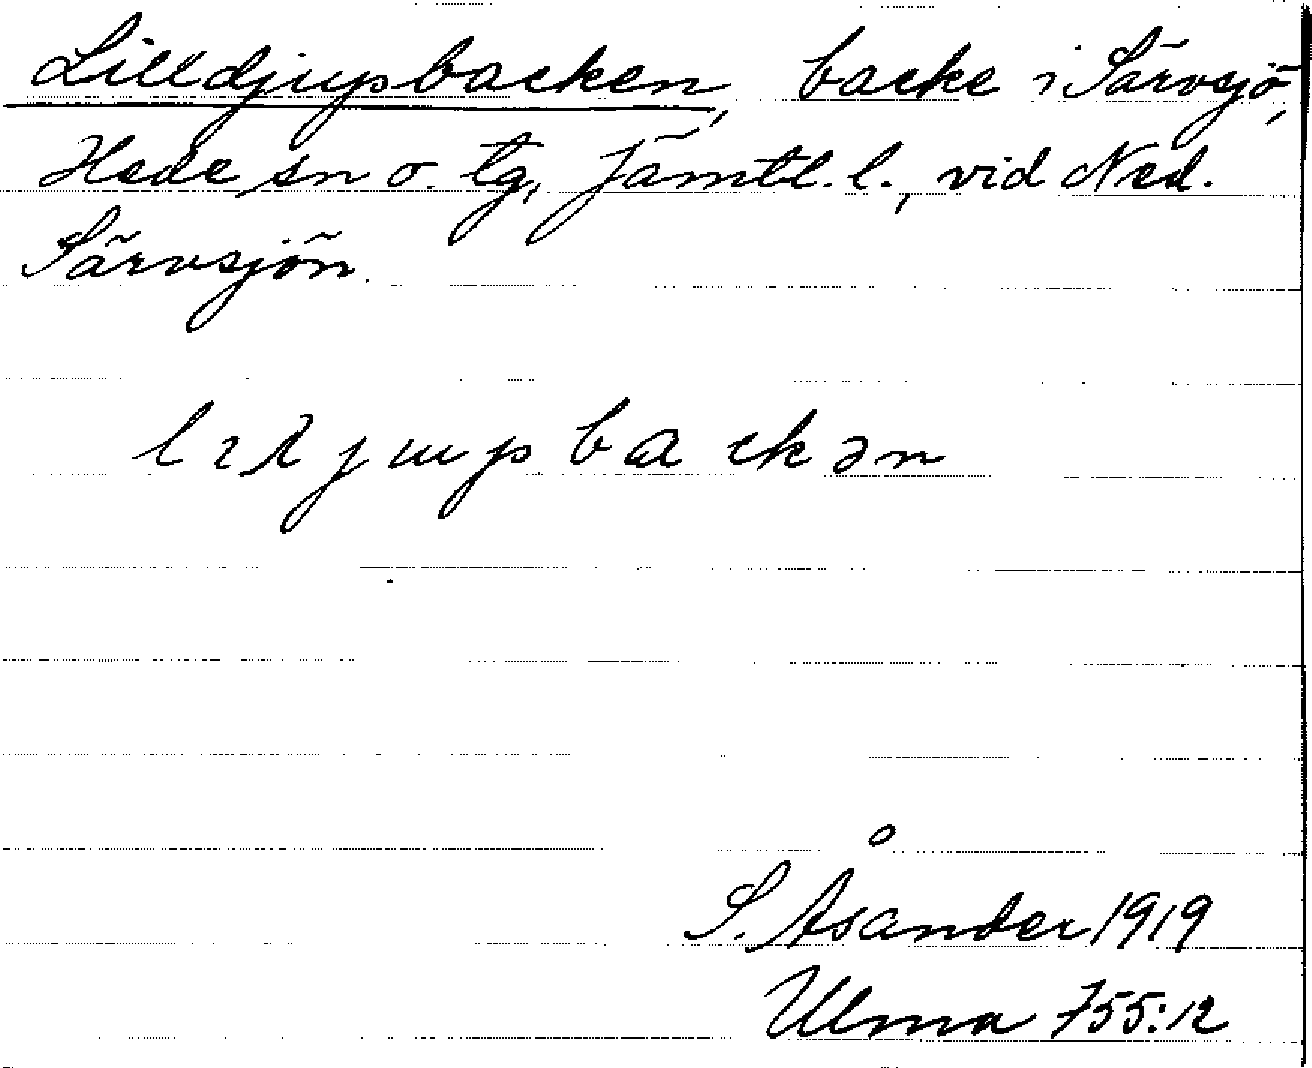 Lilldjupsbacken, backe i Särvsjö,
Hede sn o. tg, Jämtl. l., vid Ned.
Särvsjön.
S. Åsander 1919
Ulma 755:12